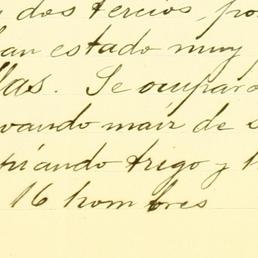 y dos tercios, po
an estado muy
llas. Se ocupar
vando maiz de s
riando trigo y
16 hombres